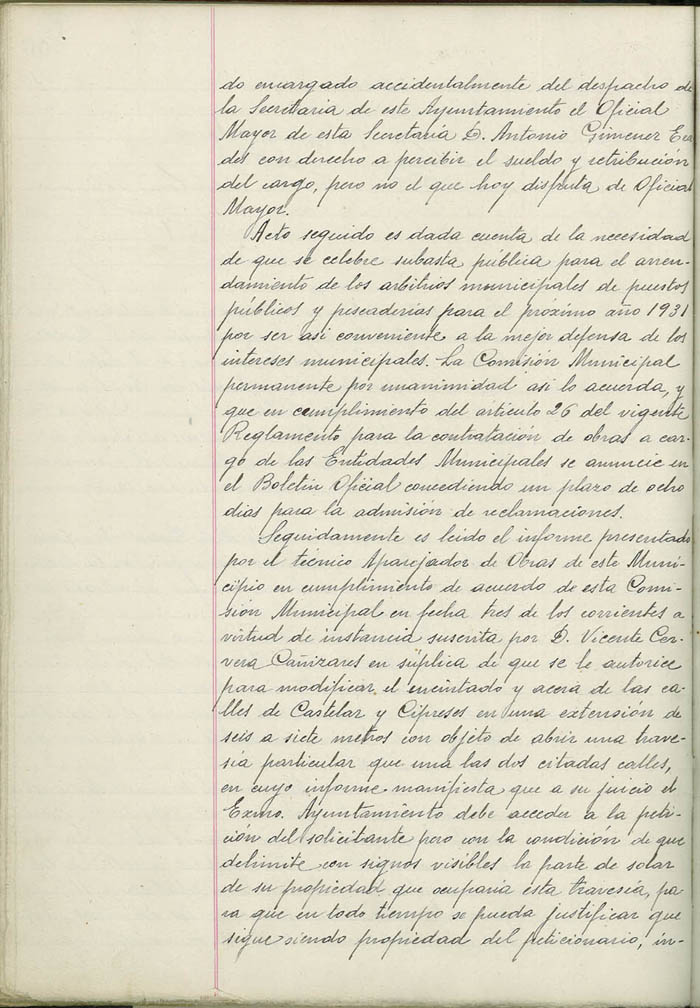 do encargado accidentalmente del despacho de
la Secretaria de este Ayuntamiento el Oficial
Mayor de esta Secretaria D. Antonio Gimenez
des con derecho a percibir el sueldo y retribución
del cargo, pero no el que hoy disfruta de Oficial
Mayor.
Acto seguido es dada cuenta de la necesidad
de que se celebre subasta pública para el arren-
damiento de los arbitrios municipales de puestos
públicos y pescaderias para el próximo año 1931
por ser asi conveniente a la mejor defensa de los
intereses municipales. La Comisión Municipal
permanente por unanimidad asi lo acuerda, y
que en cumplimiento del árticulo 26 del vigente
Reglamento para la contratación de obras a car-
go de las Entidades Municipales se anuncie en
el Boletin Oficial concediendo un plazo de ocho
dias para la admisión de reclamaciones.
Seguidamente es leido el informe presentado
por el técnico Aparejador de Obras de este Muni-
cipio en cumplimiento de acuerdo de esta Comi-
sión Municipal en fecha tres de los corrientes a
virtud de instancia suscrita por D. Vicente Cer-
vera Cañizares en súplica de que se le autorice
para modificar el encintado y acera de las ca-
lles de Castelar y Cipreses en una extensión de
seis a siete metros con objeto de abrir una trave-
sia particular que una las dos citadas calles,
en cuyo informe manifiesta que a su juicio el
Exmo. Ayuntamiento debe acceder a la peti-
ción del solicitante pero con la condición de que
delimite con signos visibles la parte de solar
de su propiedad que ocuparia esta travesia, pa-
ra que en todo tiempo se pueda justificar que
sigue siendo propiedad del peticionario, in-